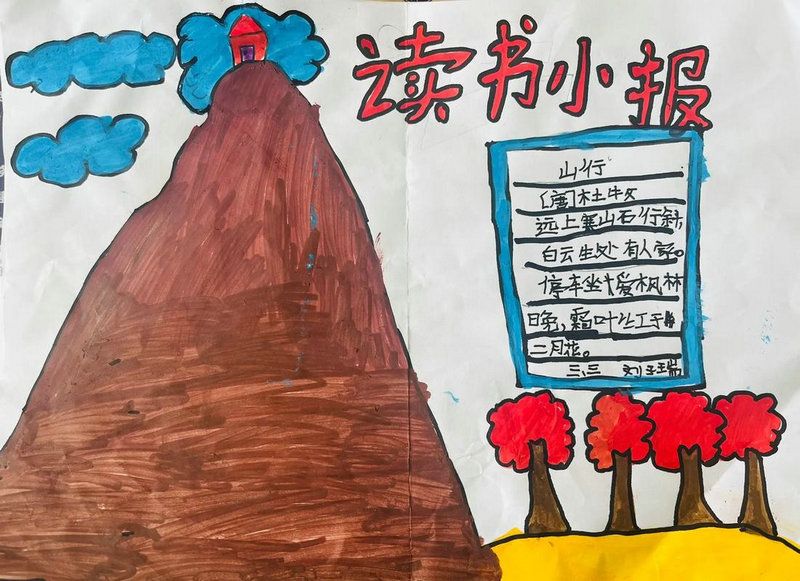 读书小报
山行
[唐]杜牧
远上寒山石行斜,
白云生处有人家。
停车坐爱枫林
晚,霜叶红于
二月花。
三.三 刘子瑞